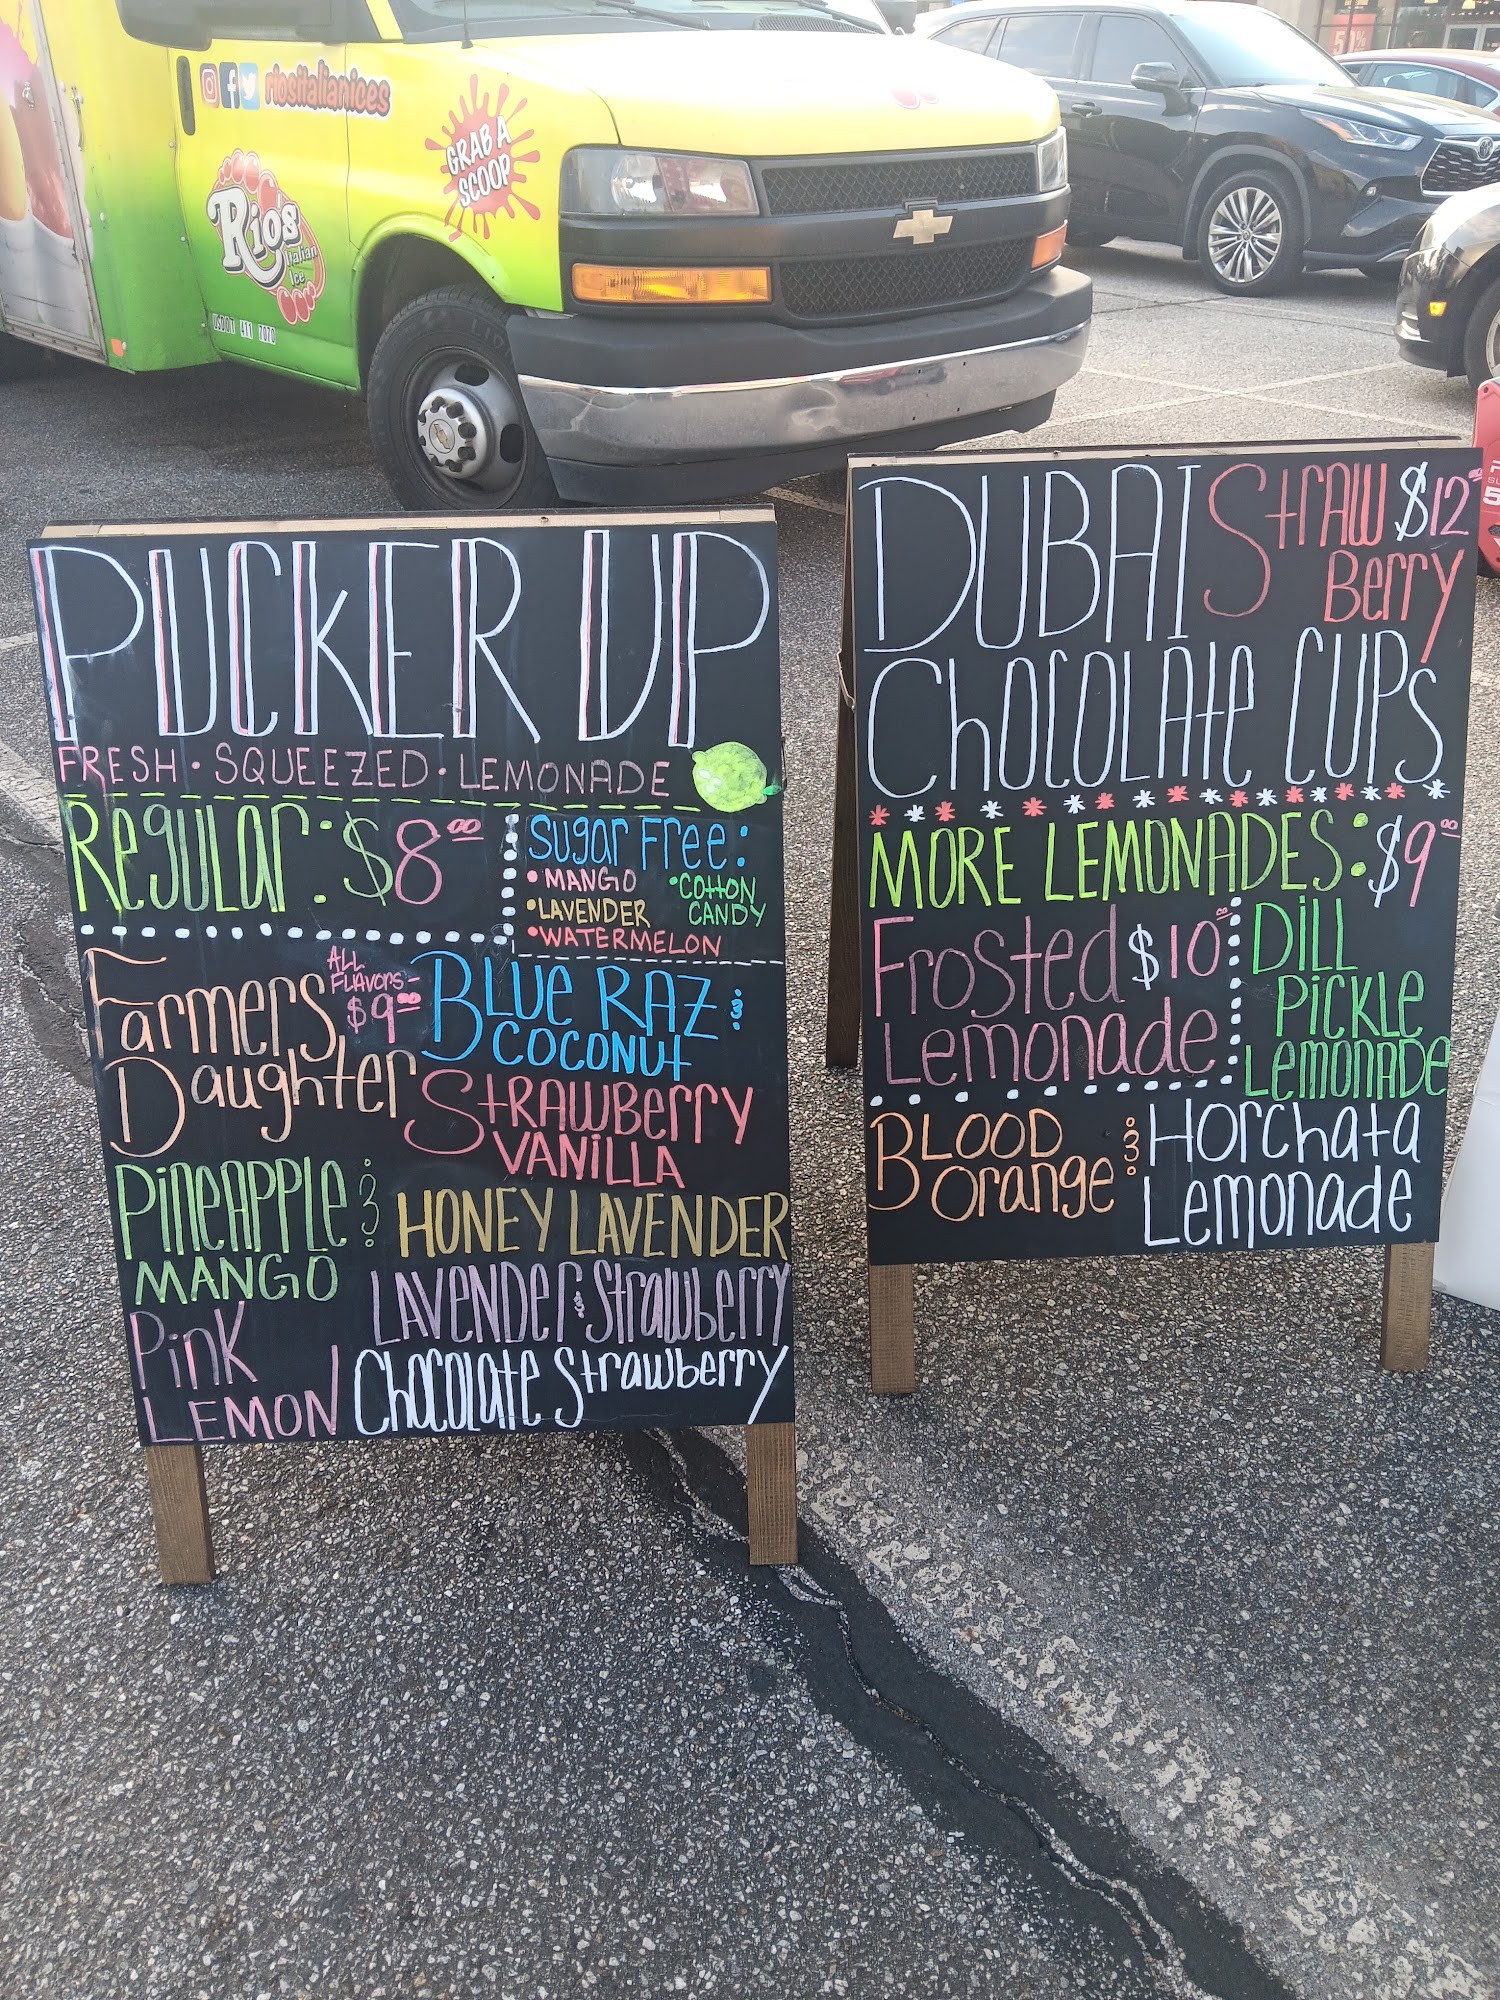 riositalianices
GRAB A
SCOOP
Rio's
Italian
Ice
USDOT 411 7070
PUCKER UP
FRESH · SQUEEZED · LEMONADE
REGULAR: $8.00
SUGAR FREE:
• MANGO
• LAVENDER
• WATERMELON
• COTTON
CANDY
FARMERS
DAUGHTER
ALL
FLAVORS-
$9.00
BLUE RAZ &
COCONUT
STRAWBERRY
VANILLA
PINEAPPLE &
MANGO
HONEY LAVENDER
PINK
LEMON
LAVENDER & STRAWBERRY
CHOCOLATE STRAWBERRY
DUBAI STRAW
BERRY
$12.00
CHOCOLATE CUPS
MORE LEMONADES: $9.00
FROSTED $10.00
LEMONADE
DILL
PICKLE
LEMONADE
BLOOD
ORANGE &
HORCHATA
LEMONADE